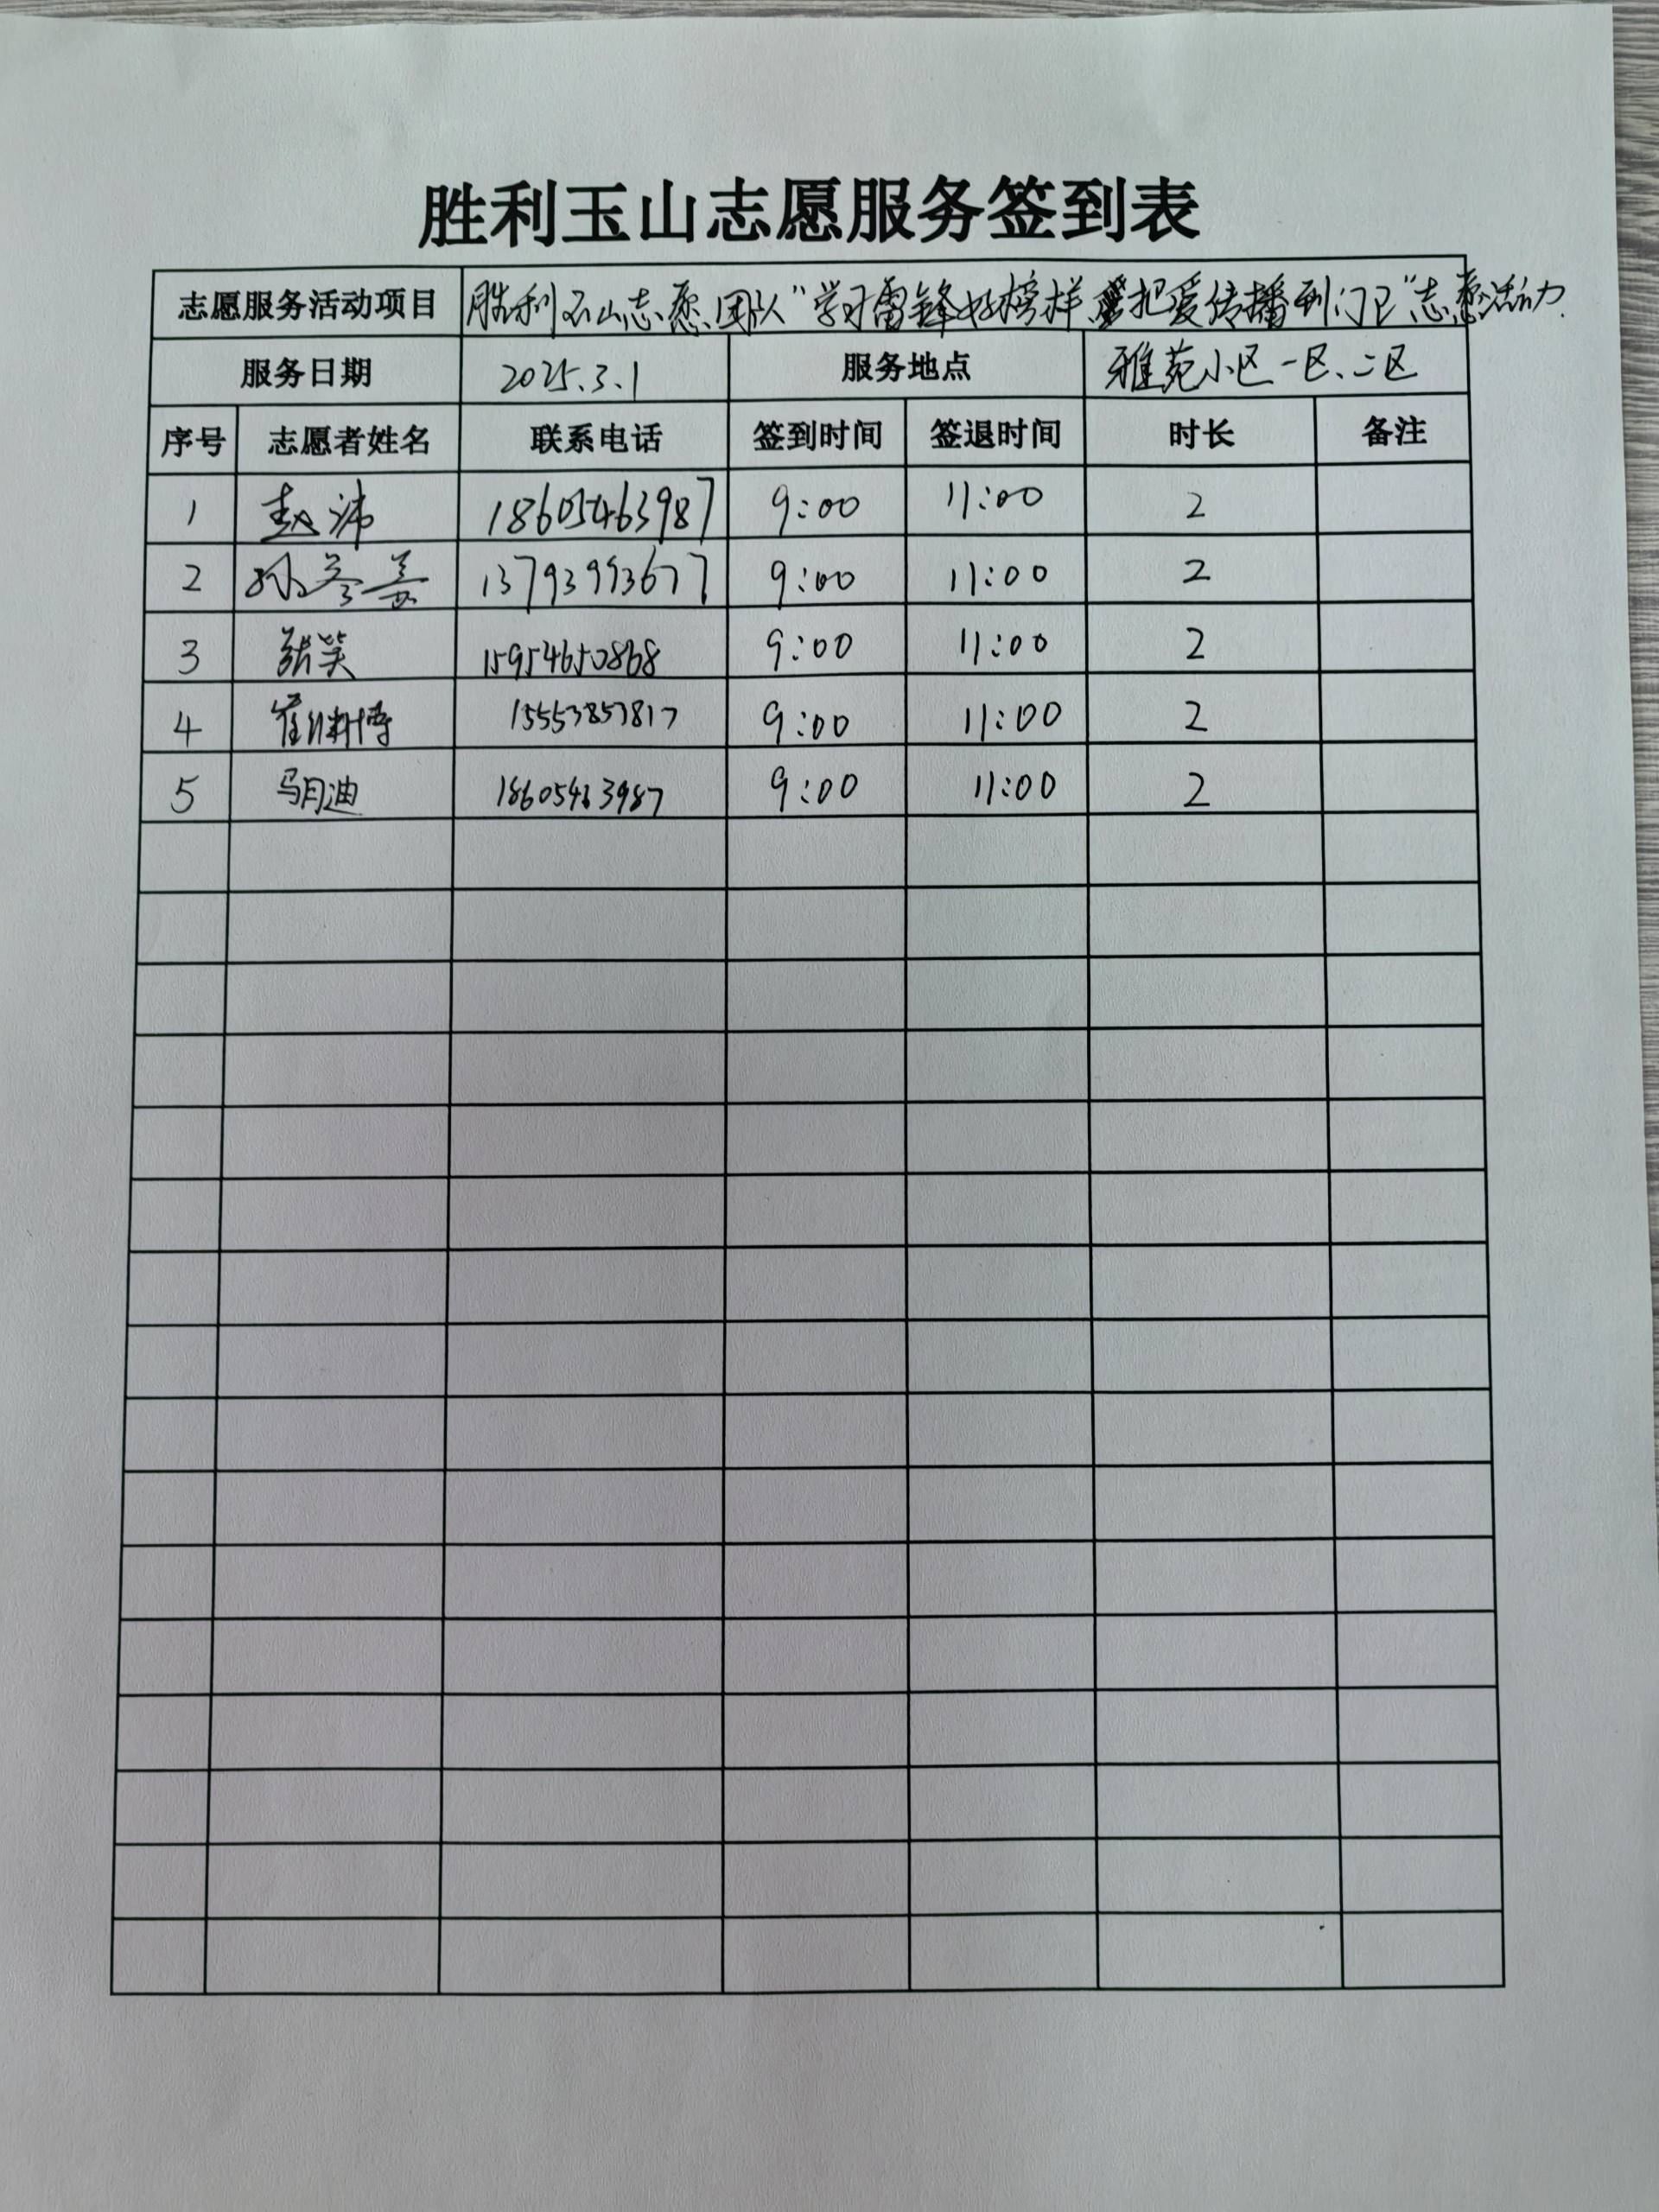 胜利玉山志愿服务签到表
志愿服务活动项目 胜利玉山志愿团队"学习雷锋好榜样 把爱传播到门卫"志愿活动.
服务日期 2025.3.1 服务地点 雅苑小区一区、二区
序号 志愿者姓名 联系电话 签到时间 签退时间 时长 备注
1 赵沛 18605463987 9:00 11:00 2
2 孙 13793993677 9:00 11:00 2
3 张笑 15954650868 9:00 11:00 2
4 崔 博 15553853817 9:00 11:00 2
5 马月迪 18605463987 9:00 11:00 2